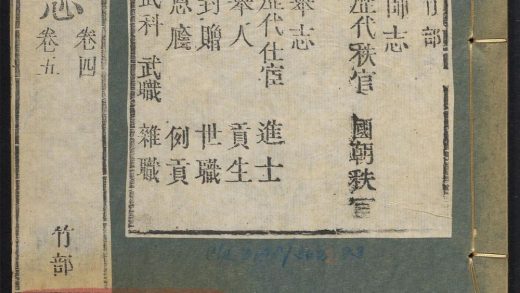 竹部
師志
歷代秩官 國朝秩官
舉志
歷代仕宦 進士
舉人 貢生
封贈 世職
恩廕 例貢
武科 武職 雜職
志 卷四
卷五
竹部